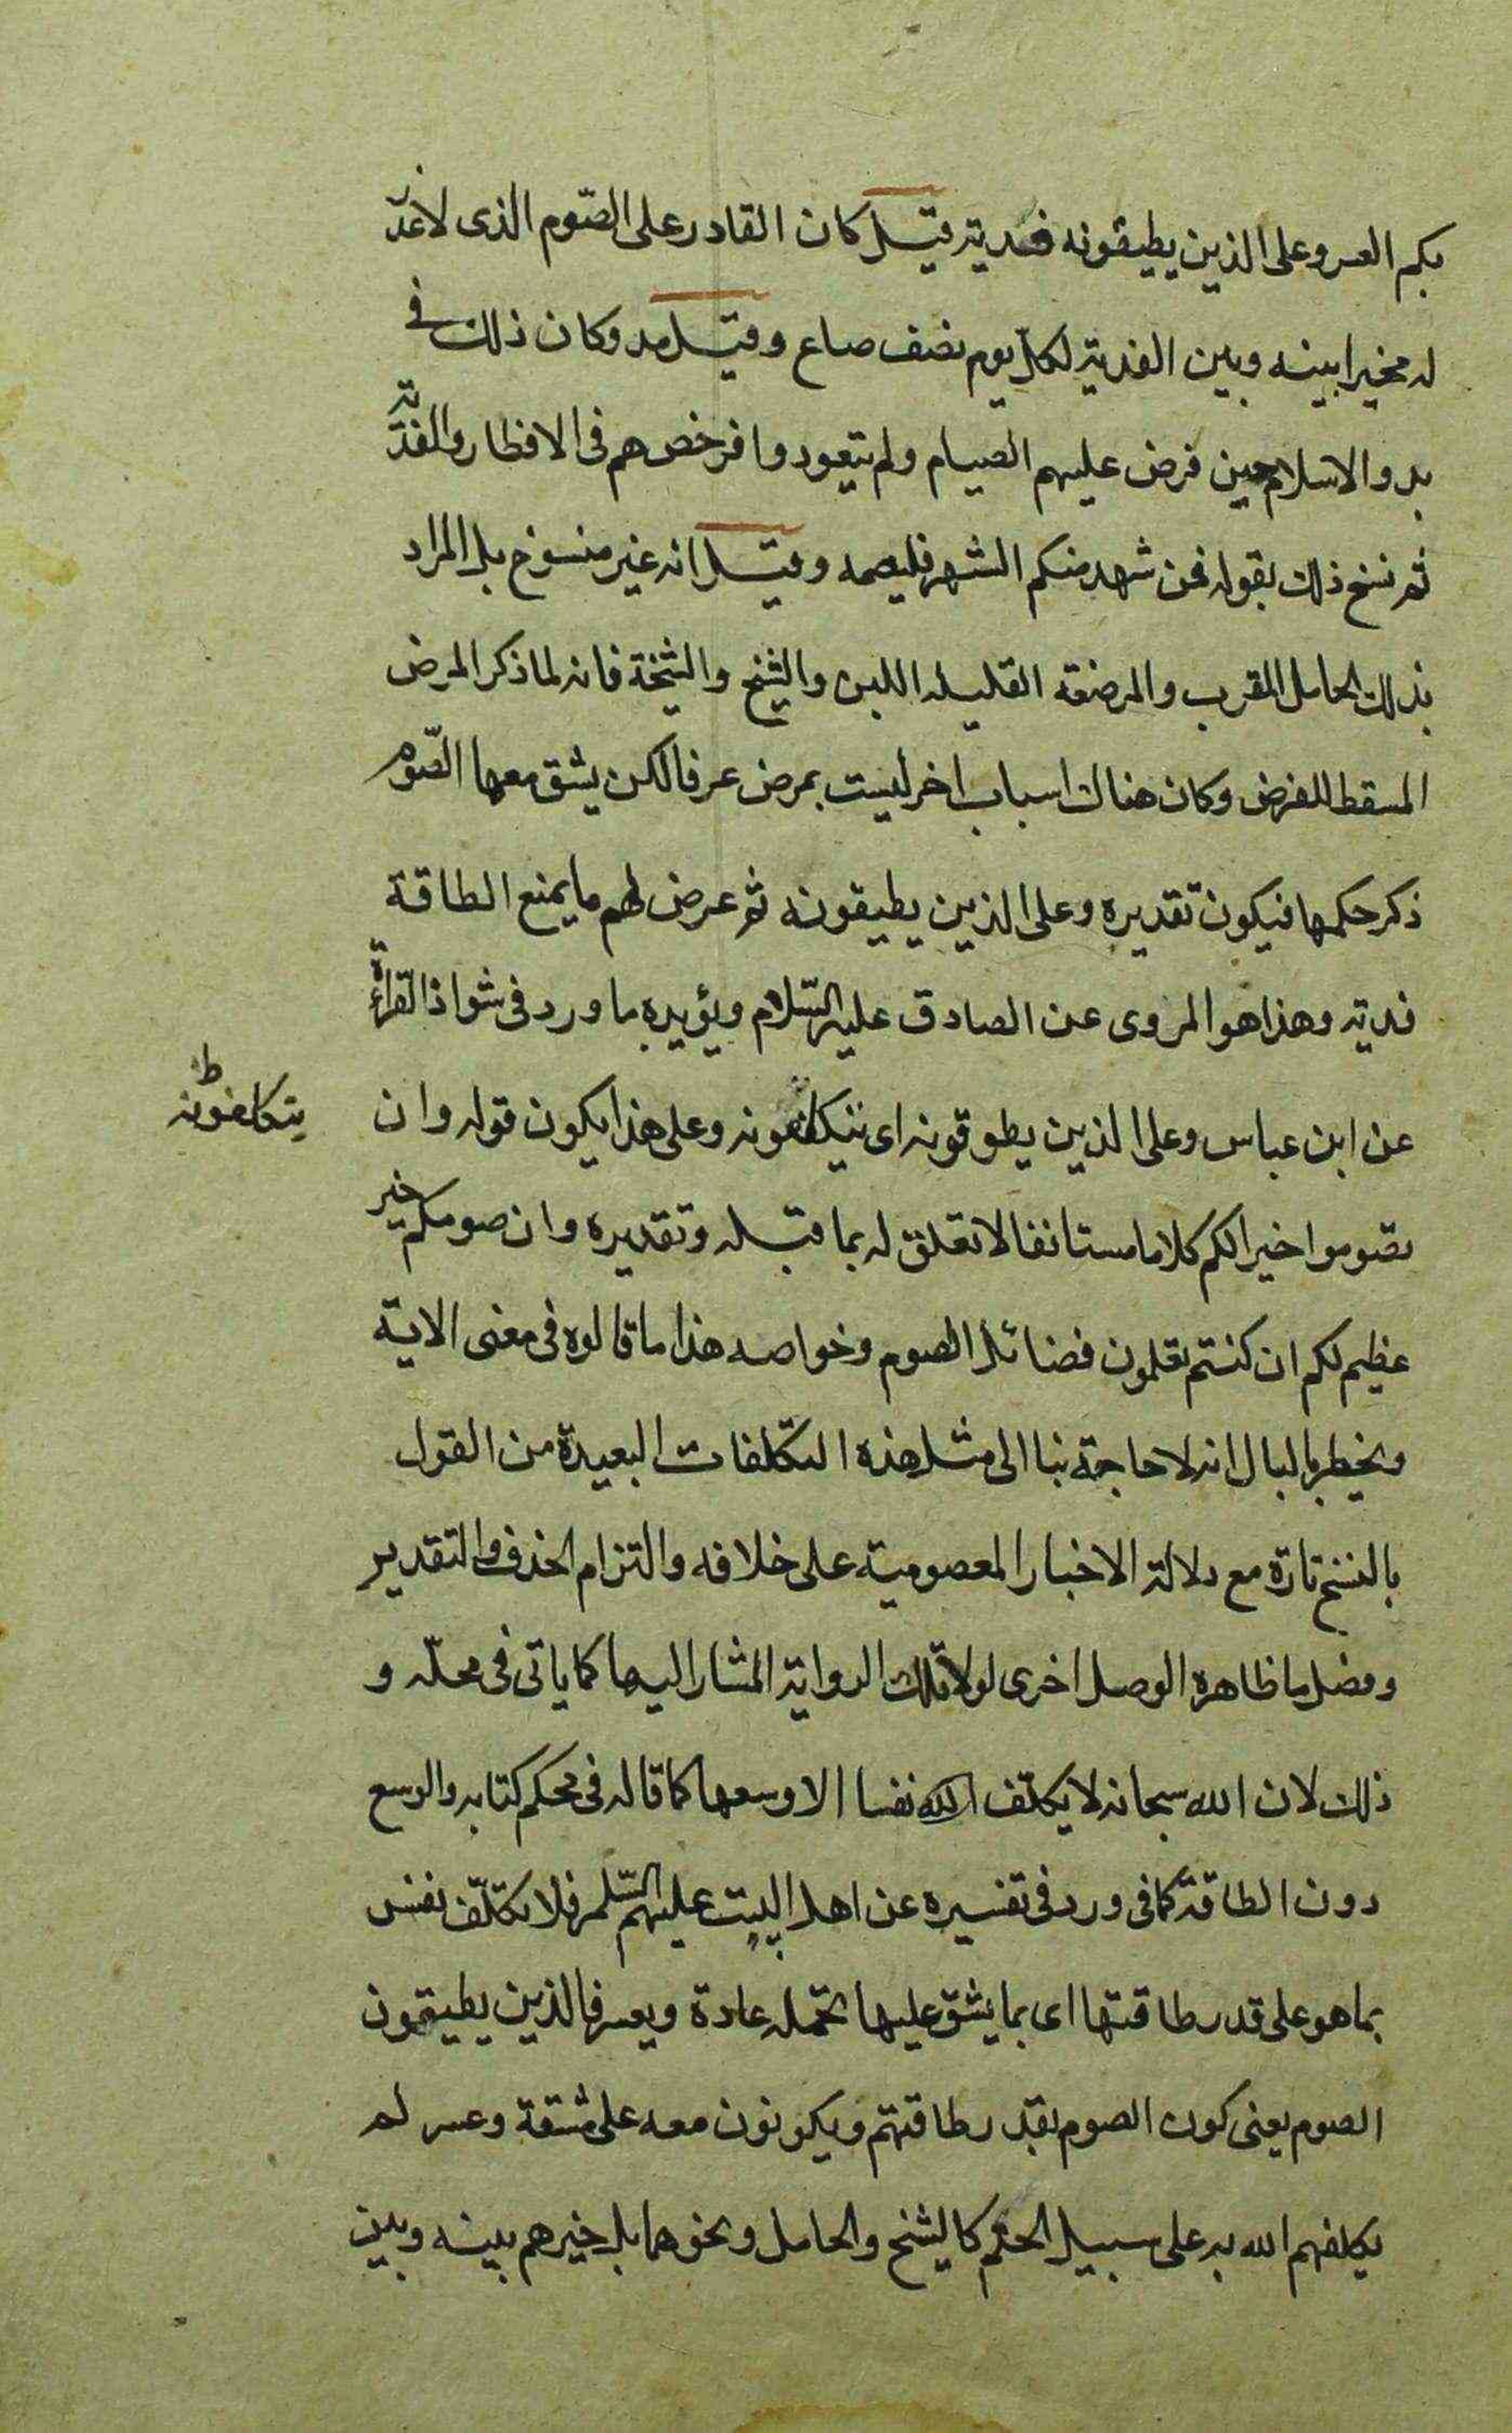 بكم العسر وعلى الذين يطيقونه فدية قيل كان القادر على الصّوم الذى لا عذر
له مخيرا بينه وبين الفدية لكل يوم نصف صاع وقيل مد وكان ذلك فى
بدو الاسلام حين فرض عليهم الصيام ولم يتعودوا فرخص هم فى الافطار والفدية
ثم نسخ ذلك بقوله فمن شهد منكم الشهر فليصمه وقيل انه غير منسوخ بل المراد
بذلك الحامل المقرب والمرضعة القليله اللبن والشيخ والشيخة فانه لما ذكر المرض
المسقط للفرض وكان هناك اسباب اخر ليست بمرض عرفا لكن يشق معها الصّوم
ذكر حكمها فيكون تقديره وعلى الذين يطيقونه ثم عرض لهم ما يمنع الطاقة
فدية وهذا هو المروى عن الصادق عليه السّلام ويؤيده ما ورد فى شواذ القراءة
عن ابن عباس وعلى الذين يطوقونه اى يتكلفونه وعلى هذا يكون قوله وان
يتكلفونه ط
تصوموا خيرا لكم كلاما مستانفا لا تعلق له بما قبله وتقديره وان صومكم خير
عظيم لكم ان كنتم تعلمون فضائل الصوم وخواصه هذا ما قالوه فى معنى الاية
ويخطر بالبال انه لا حاجة بنا الى مثل هذه التكلفات البعيدة من القول
بالنسخ تارة مع دلالة الاخبار المعصومية على خلافه والتزام الحذف والتقدير
وفصل ما ظاهره الوصل اخرى لولا تلك الرواية المشار اليها كما ياتى فى محلّه و
ذلك لان الله سبحانه لا يكلّف الله نفسا الا وسعها كما قاله فى محكم كتابه والوسع
دون الطاقة كما فى ورد فى تفسيره عن اهل البيت عليهم السّلم فلا يكلّف نفس
بما هو على قدر طاقتها اى بما يشقّ عليها تحمّله عادة ويعسر فالذين يطيقون
الصوم يعنى كون الصوم بقدر طاقتهم ويكونون معه على مشقة وعسر لم
يكلفهم الله به على سبيل الحتم كالشيخ والحامل ونحوهما بل خيرهم بينه وبين